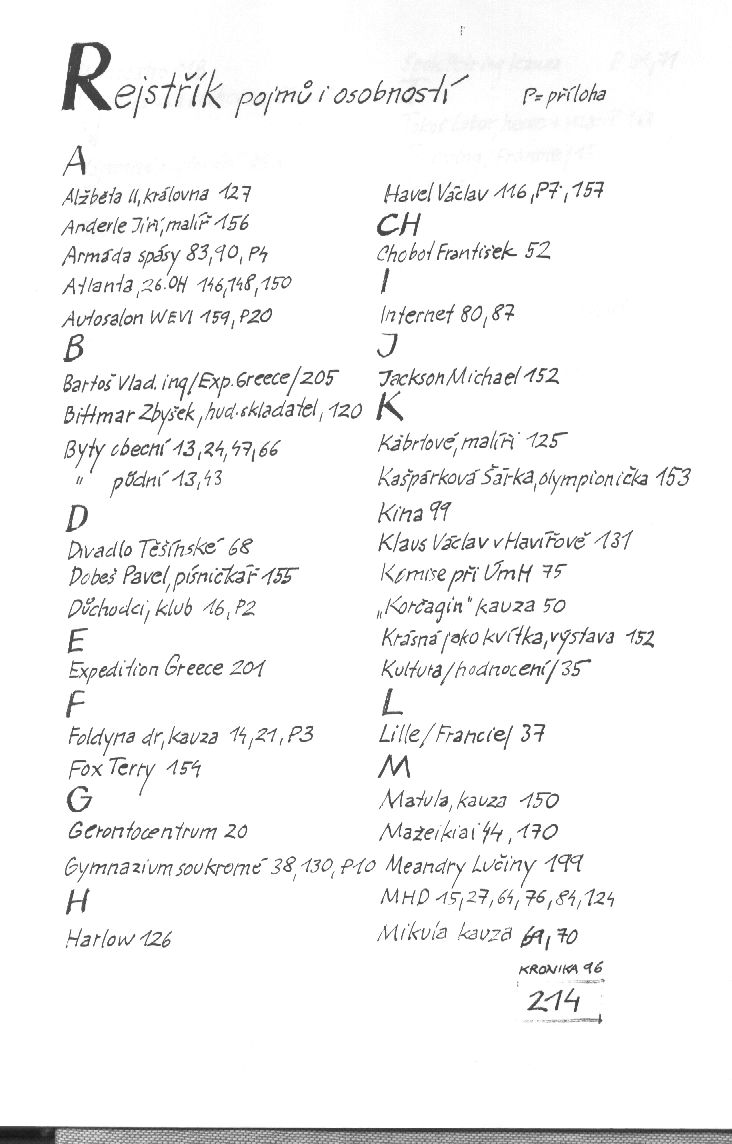 Rejstřík pojmů i osobností P= příloha
A
Alžběta II, královna 127
Anderle Jiří, malíř 156
Armáda spásy 83, 90, P4
Atlanta, 26.OH 146, 148, 150
Autosalon WEVI 159, P20
B
Bartoš Vlad. ing/Exp. Greece/205
Bittmar Zbyšek, hud. skladatel, 120
Byty obecní 13, 24, 47, 66
" půdní 13, 43
D
Divadlo Těšínské 68
Dobeš Pavel, písničkář 155
Důchodci, klub 16, P2
E
Expedition Greece 201
F
Foldyna dr, kauza 14, 21, P3
Fox Terry 154
G
Gerontocentrum 20
Gymnazium soukromé 38, 130, P10
H
Harlow 126
Havel Václav 116, P7, 157
CH
Chobot František 52
I
Internet 80, 87
J
Jackson Michael 152
K
Kábrtové, malíři 125
Kašpárková Šárka, olympionička 153
Kina 99
Klaus Václav v Havířově 131
Komise při ÚmH 75
„Korčagin" kauza 50
Krásná jako kvítka, výstava 152
Kultura/hodnocení/35
L
Lille/Francie/ 37
M
Matula, kauza 150
Mažeikiai 44, 170
Meandry Lučiny 199
MHD 15, 27, 64, 76, 84, 124
Mikula kauza 69, 70
KRONIKA 96
214